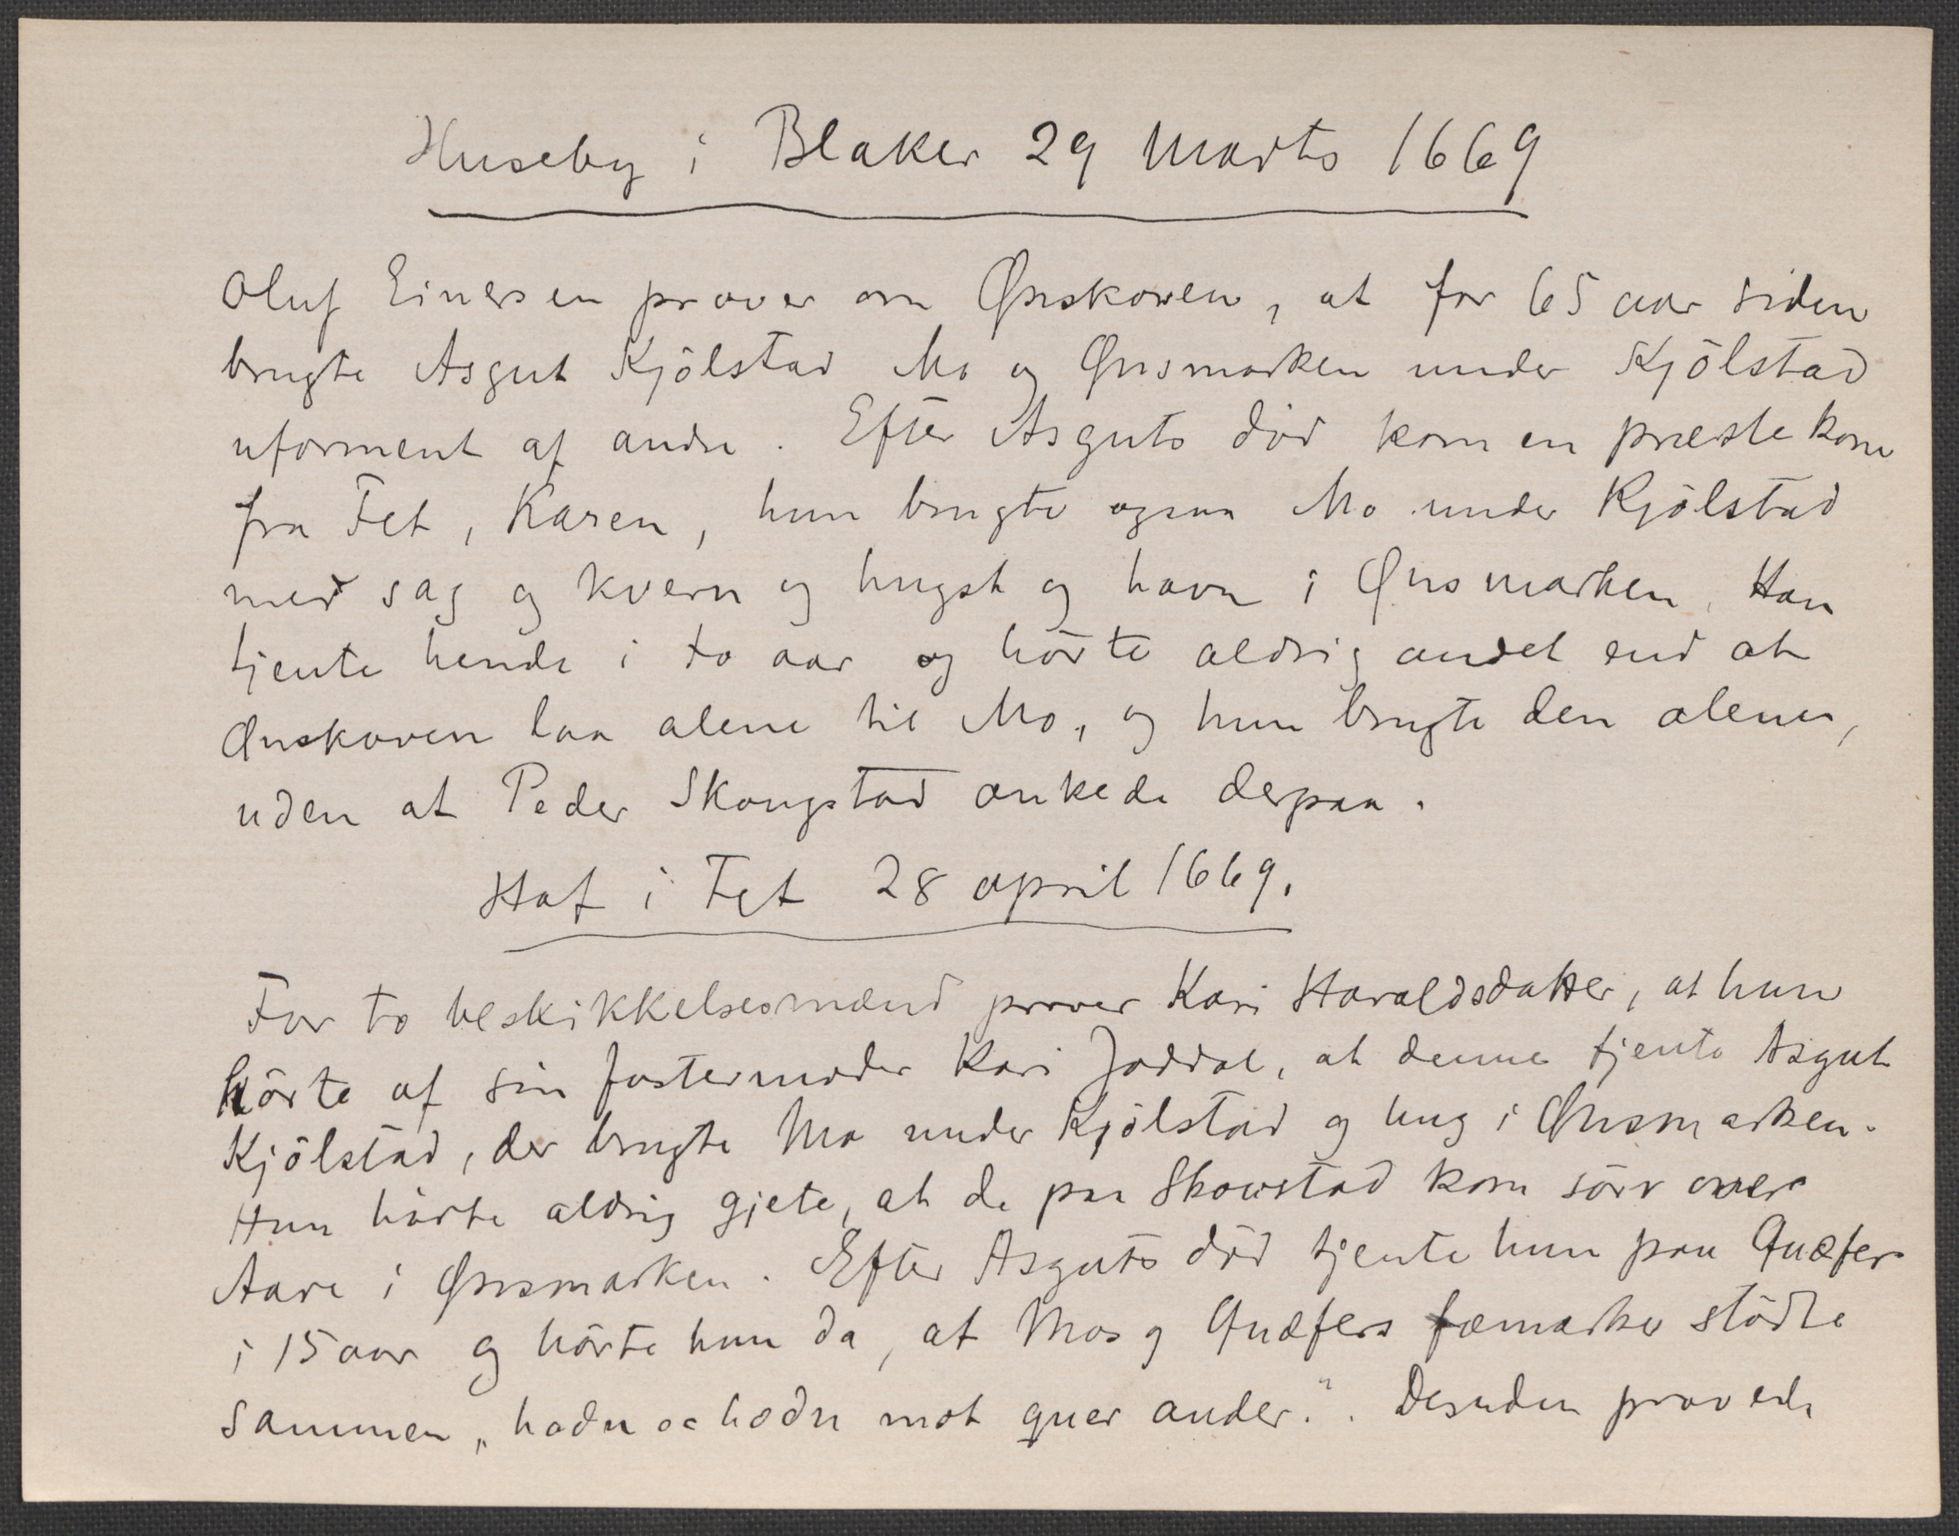 Huseby i Blaker 29 Marts 1669
Oluf Einersen prover om Ønskoven, at for 65 aar siden
brugte Asgut Kjölstad Mo og Ønsmarken under Kjölstad
uforment af andre. Efter Asguts död kom en præstekone
fra Fet, Karen, hun brugte ogsaa Mo under Kjölstad
med sag og kvern og hugst og havn i Ønsmarken. Han
tjente hende i to aar og hörte aldrig andet end at
Ønskoven laa alene til Mo, og hun brugte den alene,
uden at Peder Skougstad ankede derpaa.
Hof i Fet 28 april 1669.
For to beskikkelsesmænd prover Kari Haraldsdatter, at hun
hörte af sin fostermoder Kari Joddal, at denne tjente Asgut
Kjölstad, der brugte Mo under Kjölstad og hug i Ønsmarken.
Hun hörte aldrig gjete, at de paa Skovstad kom sörr over
Aare i Ønsmarken. Efter Asguts död tjente hun paa Quæfer
i 15 aar og hörte hun da, at Mos og Quæfers fæmarker stödte
sammen „hodn oc hodn mot quer ander.“. Desuden provede